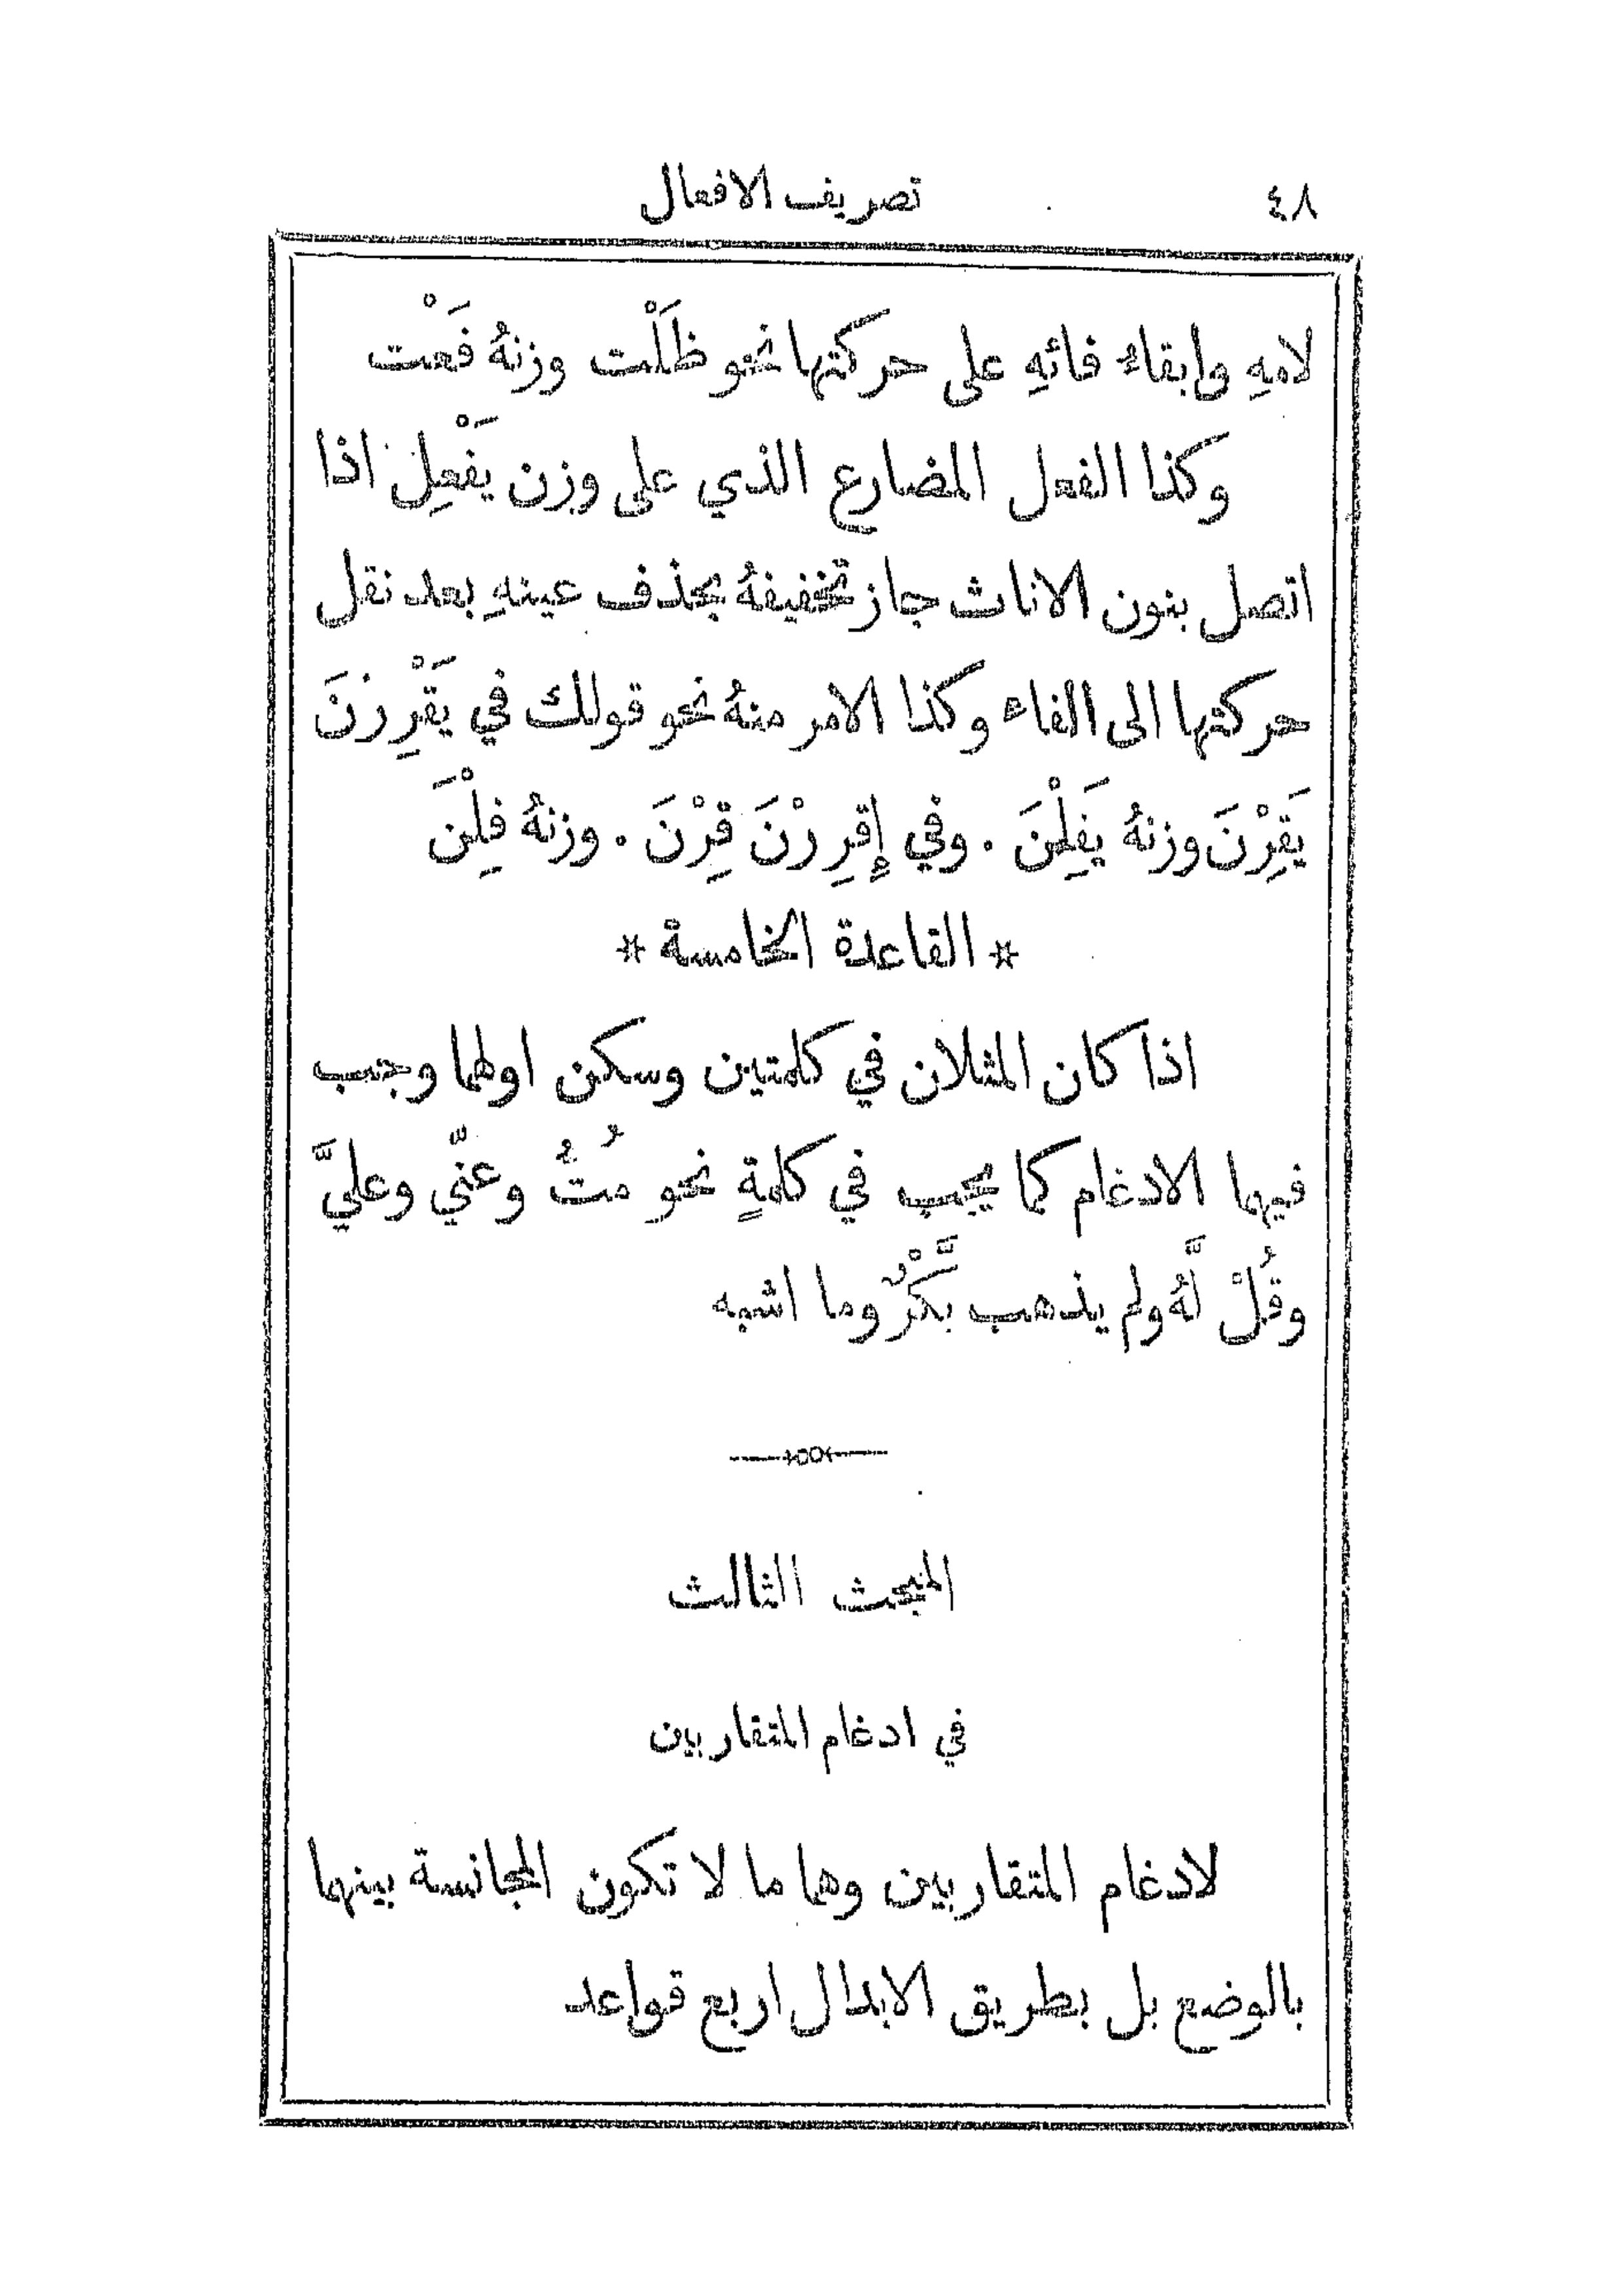 ٤٨ تصريف الافعال
لامهِ وابقاء فائهِ على حركتها نحو ظَلْت وزنهُ فَعْت
وكذا الفعل المضارع الذي على وزن يَفْعِل اذا
اتصل بنون الاناث جاز تخفيفهُ بحذف عينهِ بعد نقل
حركتها الى الفاء وكذا الامر منهُ نحو قولك في يَقْرِرْنَ
يَقِرْنَ وزنهُ يَفِلْنَ . وفي إِقرِرْنَ قِرْنَ . وزنهُ فِلْنَ
* القاعدة الخامسة *
اذا كان المثلان في كلمتين وسكن اولهما وجب
فيهما الادغام كما يجب في كلمةٍ نحو مُتُّ وعنّي وعليَّ
وقُلْ لَّهُ ولم يذهب بَّكْرٌ وما اشبه
المبحث الثالث
في ادغام المتقاربين
لادغام المتقاربين وهما ما لا تكون المجانسة بينهما
بالوضع بل بطريق الابدال اربع قواعد